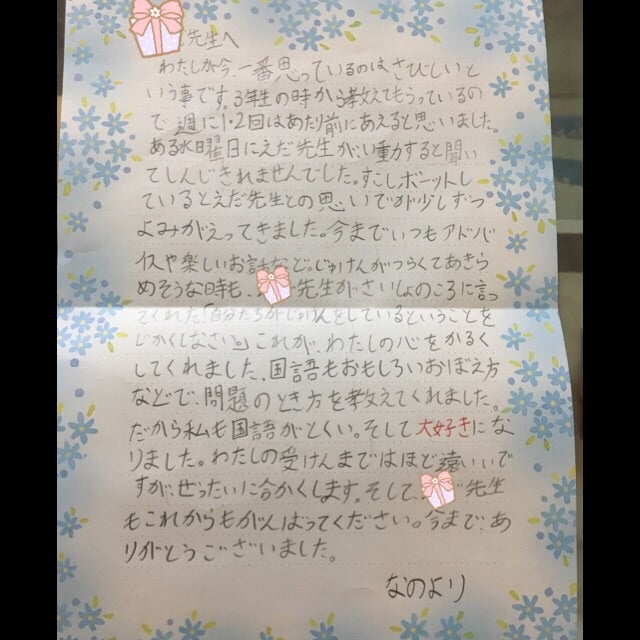 先生へ
わたしが今、一番思っているのはさびしいと
いう事です。3年生の時から教えてもらっているの
で週に1・2回はあたり前にあえると思いました。
ある水曜日にえだ先生がい動すると聞い
てしんじきれませんでした。すこしボーットし
ているとえだ先生との思いでが少しずつ
よみがえってきました。今までいつもアドバ
イスや楽しいお話など、じゅけんがつらくてあきら
めそうな時も先生がさいしょのころに言っ
てくれた、「自分たちがじゅけんをしているということを
じかくしなさい。」これが、わたしの心をかるく
してくれました。国語もおもしろいおぼえ方
などで問題のとき方を教えてくれました。
だから私も国語がとくい。そして大好きにな
りました。わたしの受けんまではほど遠いいで
すが、ぜったいに合かくします。そして、先生
もこれからもがんばってください。今まで、あ
りがとうございました。
なのより